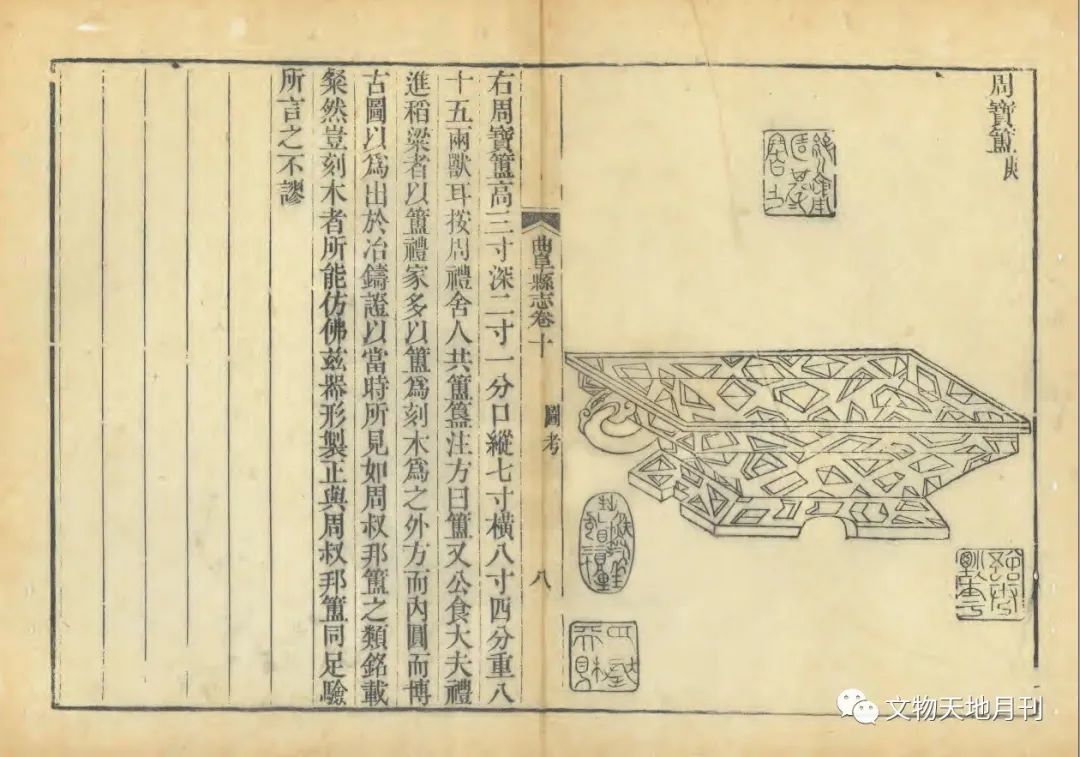 周寶簠
右周寶簠高三寸深二寸一分口縱七寸橫八寸四分重八
十五兩獸耳按周禮舍人共簠簋注方曰簠又公食大夫禮
進稻粱者以簠禮家多以簠爲刻木爲之外方而內圓而博
古圖以爲出於冶鑄證以當時所見如周叔邦簠之類銘載
粲然豈刻木者所能仿佛兹器形製正與周叔邦簠同足驗
所言之不謬
曲阜縣志卷十
圖考
八
文物天地月刊